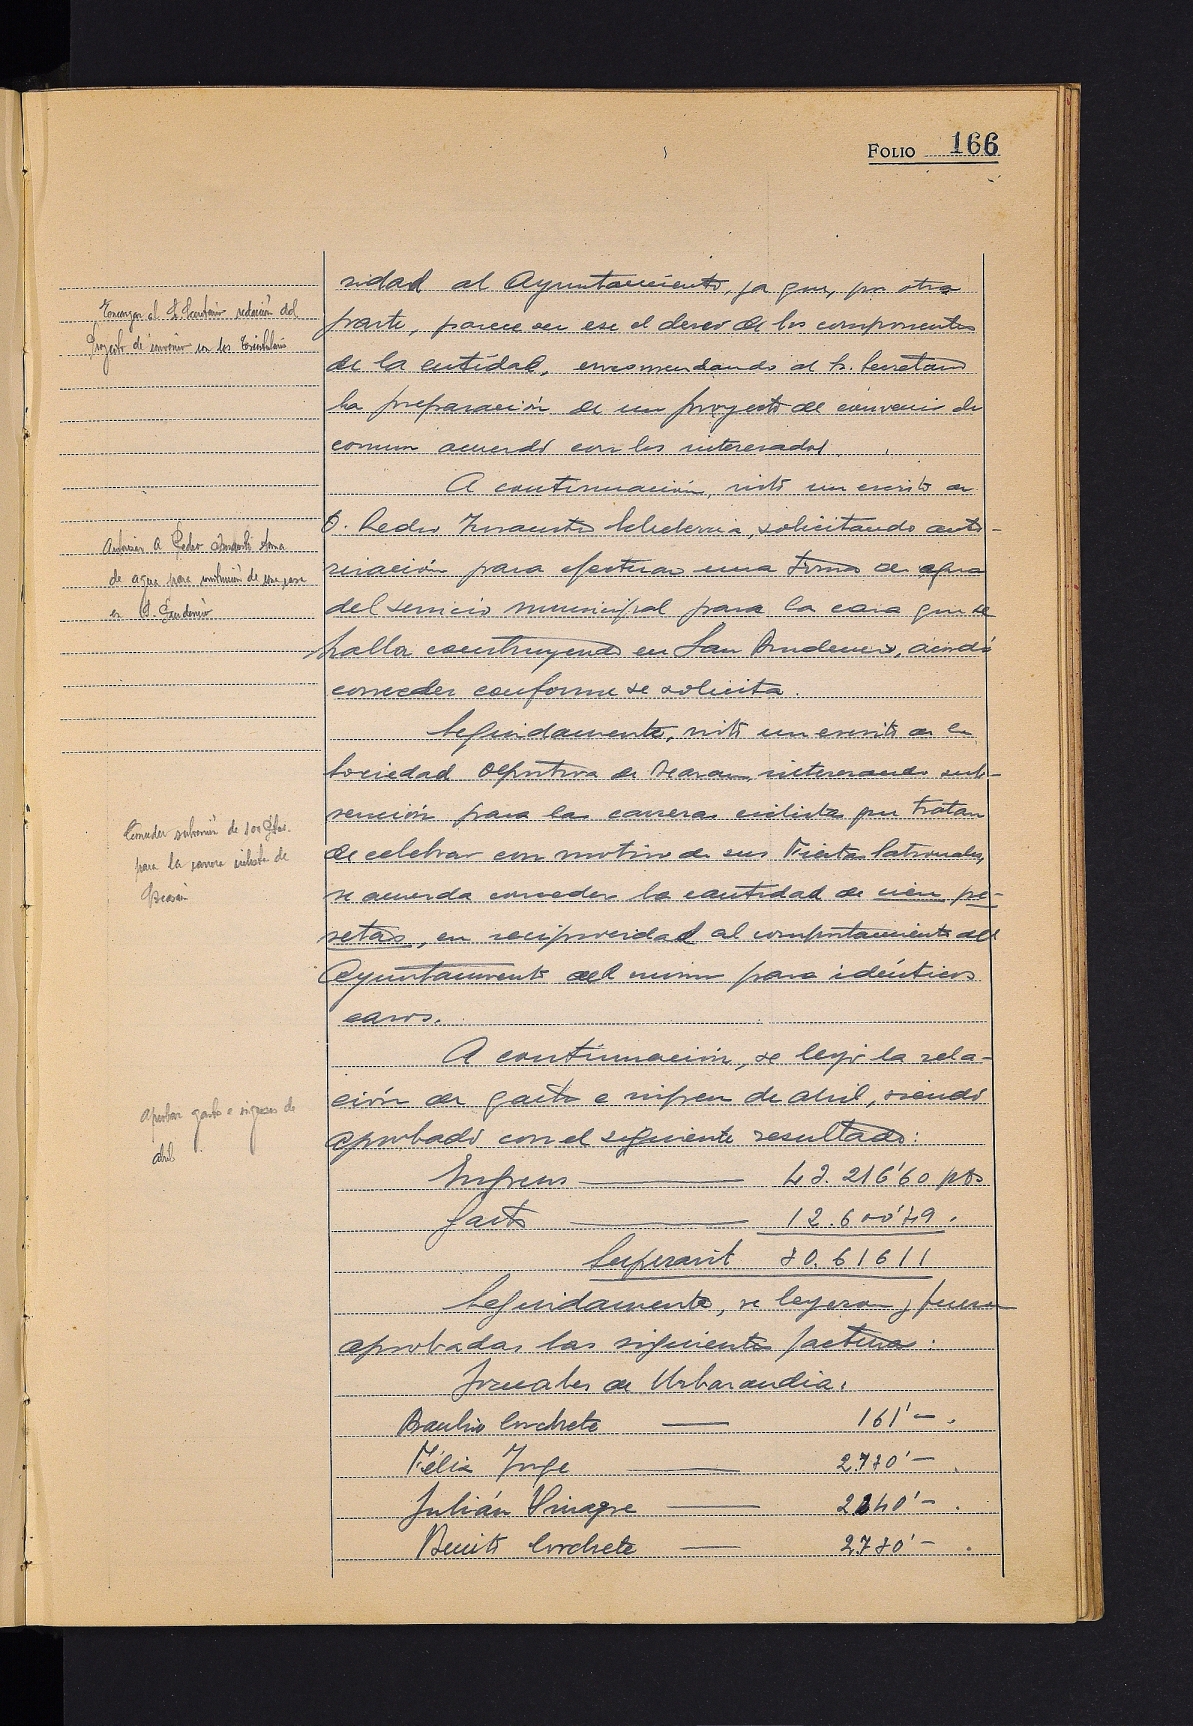 FOLIO 166
sidad al Ayuntamiento, ya que, por otra
parte, parece ser ese el deseo de los componentes
de la entidad, encomendando al Sr. Secretario
la preparación de un proyecto de convenio de
comun acuerdo con los interesados.
Encargar al Sr. Secretario redacción del
Proyecto de convenio con los
A continuación, visto un escrito de
D. Pedro Insausti Echeverria, solicitando auto-
rización para efectuar una toma de agua
del servicio municipal para la casa que se
halla construyendo en San Prudencio, acordó
conceder conforme se solicita.
Autorizar a Pedro Insausti toma
de agua para construcción de una casa
en S. Prudencio
Seguidamente, visto un escrito de la
Sociedad Deportiva de Beasain, interesando sub-
vención para la carrera ciclista que tratan
de celebrar con motivo de sus Fiestas Patronales,
se acuerda conceder la cantidad de cien pe-
setas, en reciprocidad al comportamiento del
Ayuntamiento del mismo para idénticos
casos.
Conceder subvención de 100 Ptas.
para la carrera ciclista de
Beasain
A continuación, se leyó la rela-
ción de gastos e ingresos de abril, siendo
aprobado con el siguiente resultado:
Aprobar gastos e ingresos de
abril
Ingresos — 43.216'60 pts
Gastos — 12.600'49.
Superavit 30.61611
Seguidamente, se leyeron y fueron
aprobadas las siguientes facturas:
Jornales de Urbarandia.
Braulio Corchete — 161'-.
Félix Jorge — 2730'-.
Julián Vinagre — 2240'-.
Benito Corchete — 2730'-.